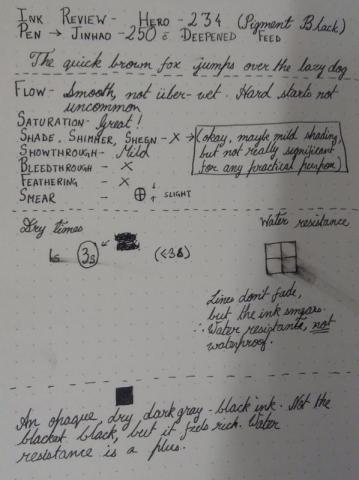 INK REVIEW - HERO - 234 (Pigment Black)
PEN → JINHAO - 250 c̄ DEEPENED FEED
The quick brown fox jumps over the lazy dog
FLOW - Smooth, not über-wet. Hard starts not
uncommon
SATURATION - Great!
SHADE, SHIMMER, SHEEN - X → (okay, maybe mild shading,
but not really significant
for any practical purpose)
SHOWTHROUGH - Mild
BLEEDTHROUGH - X
FEATHERING - X
SMEAR - SLIGHT
Dry times
1s 3s (≤3s)
Water resistance
Lines don't fade,
but the ink smears.
∴ Water resistant, not
waterproof.
An opaque, dry dark gray-black ink. Not the
blackest black, but it feels rich. Water
resistance is a plus.